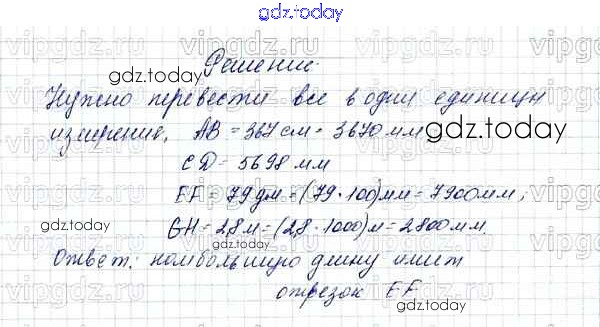 gdz.today
Решение.
gdz.today
Нужно перевести все в одни единицы
измерение, AB = 367 см = 3670 мм
gdz.today
CD = 5698 мм
EF = 79 дм = (79·100) мм = 7900 мм;
gdz.today
GH = 2,8 м = (2,8·1000) м = 2800 мм.
gdz.today
Ответ: наибольшую длину имеет
отрезок EF
gdz.today